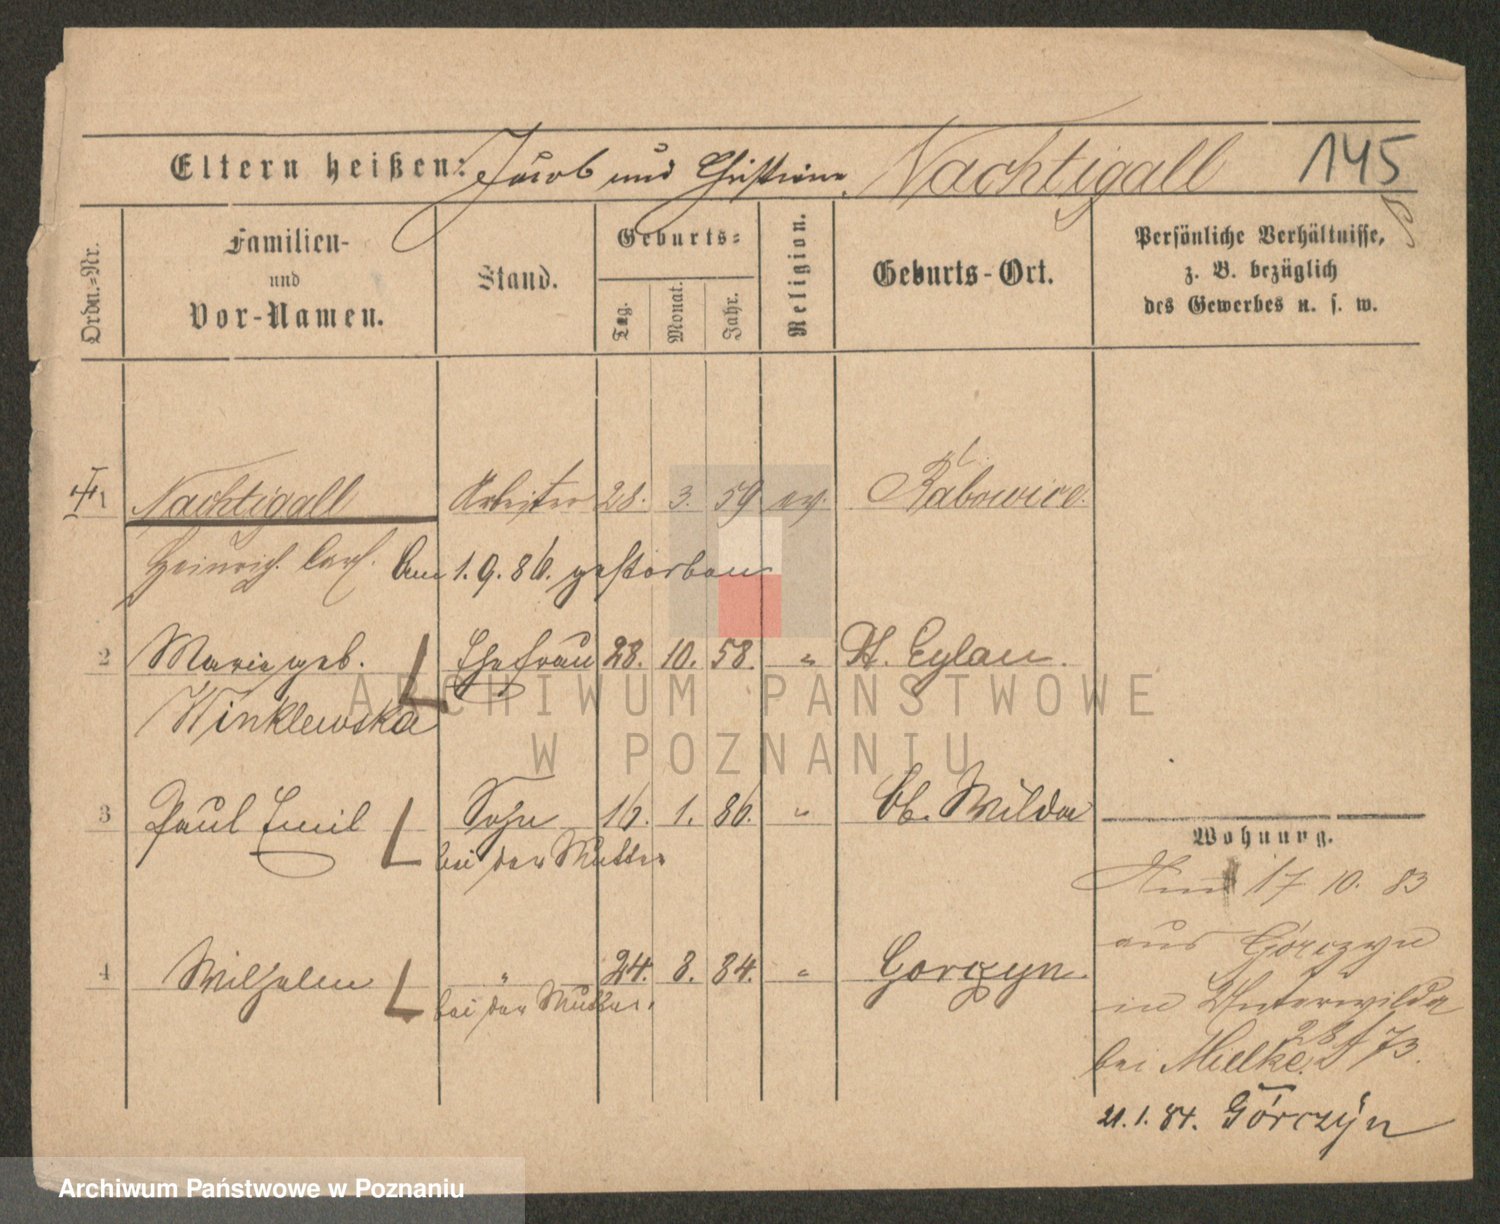 Eltern heißen: Jacob und Christine Nachtigall 145
Ordn.-Nr.
Familien-
und
Vor-Namen.
Stand.
Geburts-
Tag.
Monat.
Jahr.
Religion.
Geburts-Ort.
Persönliche Verhältnisse,
z. B. bezüglich
des Gewerbes u. s. w.
1 Nachtigall Arbeiter 28. 3. 59 ev. Rabowice.
Heinrich Carl. Am 1.9.86. gestorben
2 Marie geb. Ehefrau 28. 10. 58. " Dt. Eylau.
Winklewska
3 Paul Emil Sohn 16. 1. 86. " Ob. Wilda
bei der Mutter
4 Wilhelm " 24. 8. 84. " Gorczyn.
bei der Mutter.
Wohnung.
17 10. 83
aus Górczyn
in Unterwilda
bei Mielke. 28/73.
21.1.84. Górczyn
ARCHIWUM PAŃSTWOWE
W POZNANIU
Archiwum Państwowe w Poznaniu